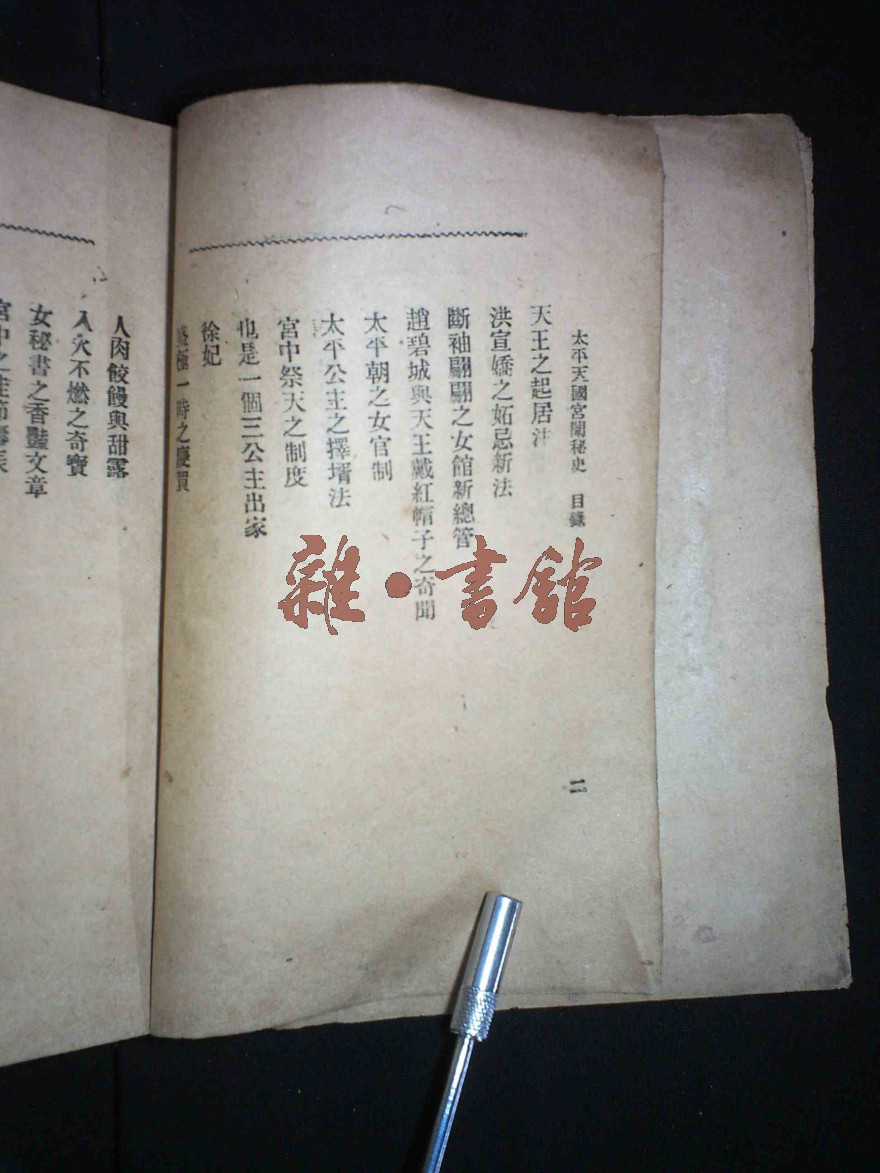 太平天國宮闈秘史 目錄
二
天王之起居注
洪宣嬌之妬忌新法
斷袖翩翩之女館新總管
趙碧城與天王戴紅帽子之奇聞
太平朝之女官制
太平公主之擇壻法
宮中祭天之制度
也是一個三公主出家
徐妃
盛極一時之慶賀
人肉餃饅與甜露
入火不燃之奇寶
女秘書之香豔文章
宮中之佳節
雜·書館